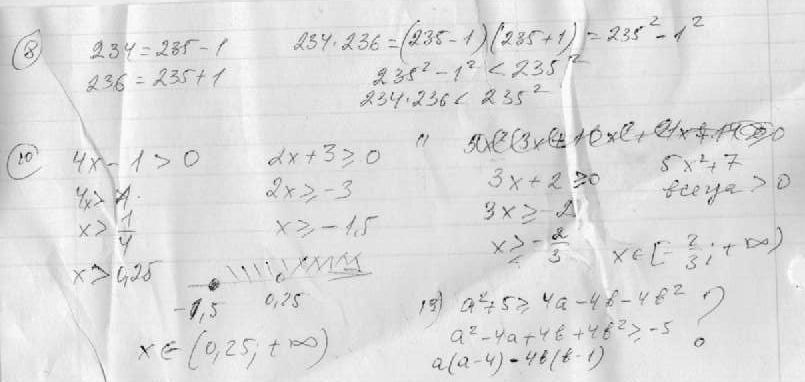 8
234 = 235 - 1
236 = 235 + 1
234·236 = (235-1)(235+1) = 235² - 1²
235² - 1² < 235²
234·236 < 235²
10
4x - 1 > 0
4x > 1
x > 1/4
x > 0,25
2x + 3 ≥ 0
2x ≥ -3
x ≥ -1,5
-1,5 0,25
x ∈ (0,25; +∞)
11
3x + 2 ≥ 0
3x ≥ -2
x ≥ -2/3
5x² + 7
всегда > 0
x ∈ [-2/3; +∞)
13) a² + 5 ≥ 4a - 4b - 4b² ?
a² - 4a + 4b + 4b² ≥ -5
a(a-4) - 4b(b-1)